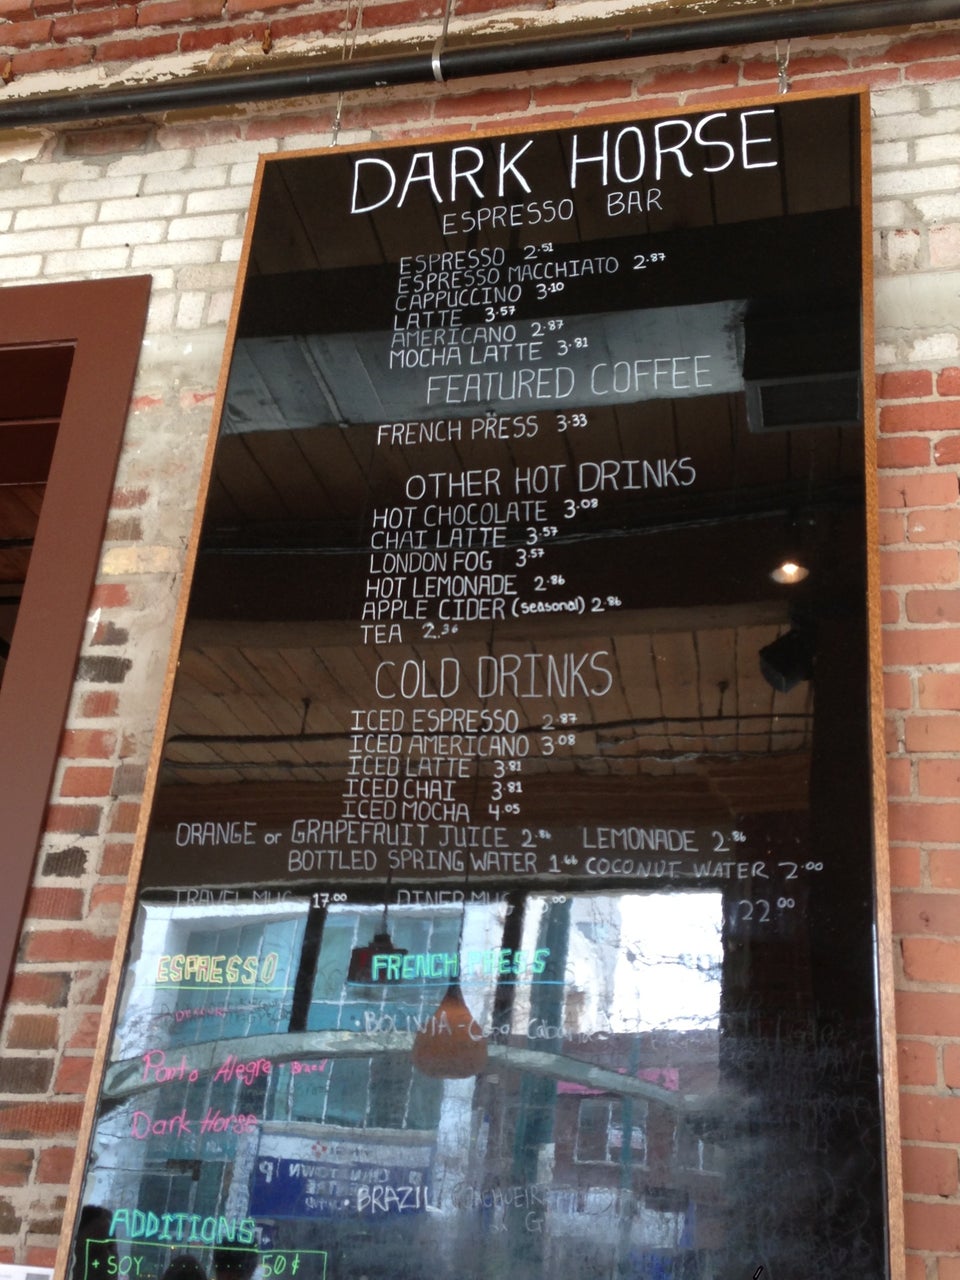 DARK HORSE
ESPRESSO BAR
ESPRESSO 2.51
ESPRESSO MACCHIATO 2.87
CAPPUCCINO 3.10
LATTE 3.57
AMERICANO 2.87
MOCHA LATTE 3.81
FEATURED COFFEE
FRENCH PRESS 3.33
OTHER HOT DRINKS
HOT CHOCOLATE 3.08
CHAI LATTE 3.57
LONDON FOG 3.57
HOT LEMONADE 2.86
APPLE CIDER (seasonal) 2.86
TEA 2.36
COLD DRINKS
ICED ESPRESSO 2.87
ICED AMERICANO 3.08
ICED LATTE 3.81
ICED CHAI 3.81
ICED MOCHA 4.05
ORANGE or GRAPEFRUIT JUICE 2.86 LEMONADE 2.86
BOTTLED SPRING WATER 1.66 COCONUT WATER 2.00
TRAVEL MUG 17.00 DINER MUG 22.00
ESPRESSO FRENCH PRESS
• BOLIVIA -
Porto Alegre - Brazil
Dark Horse
• BRAZIL
ADDITIONS
+ SOY ........ 50¢